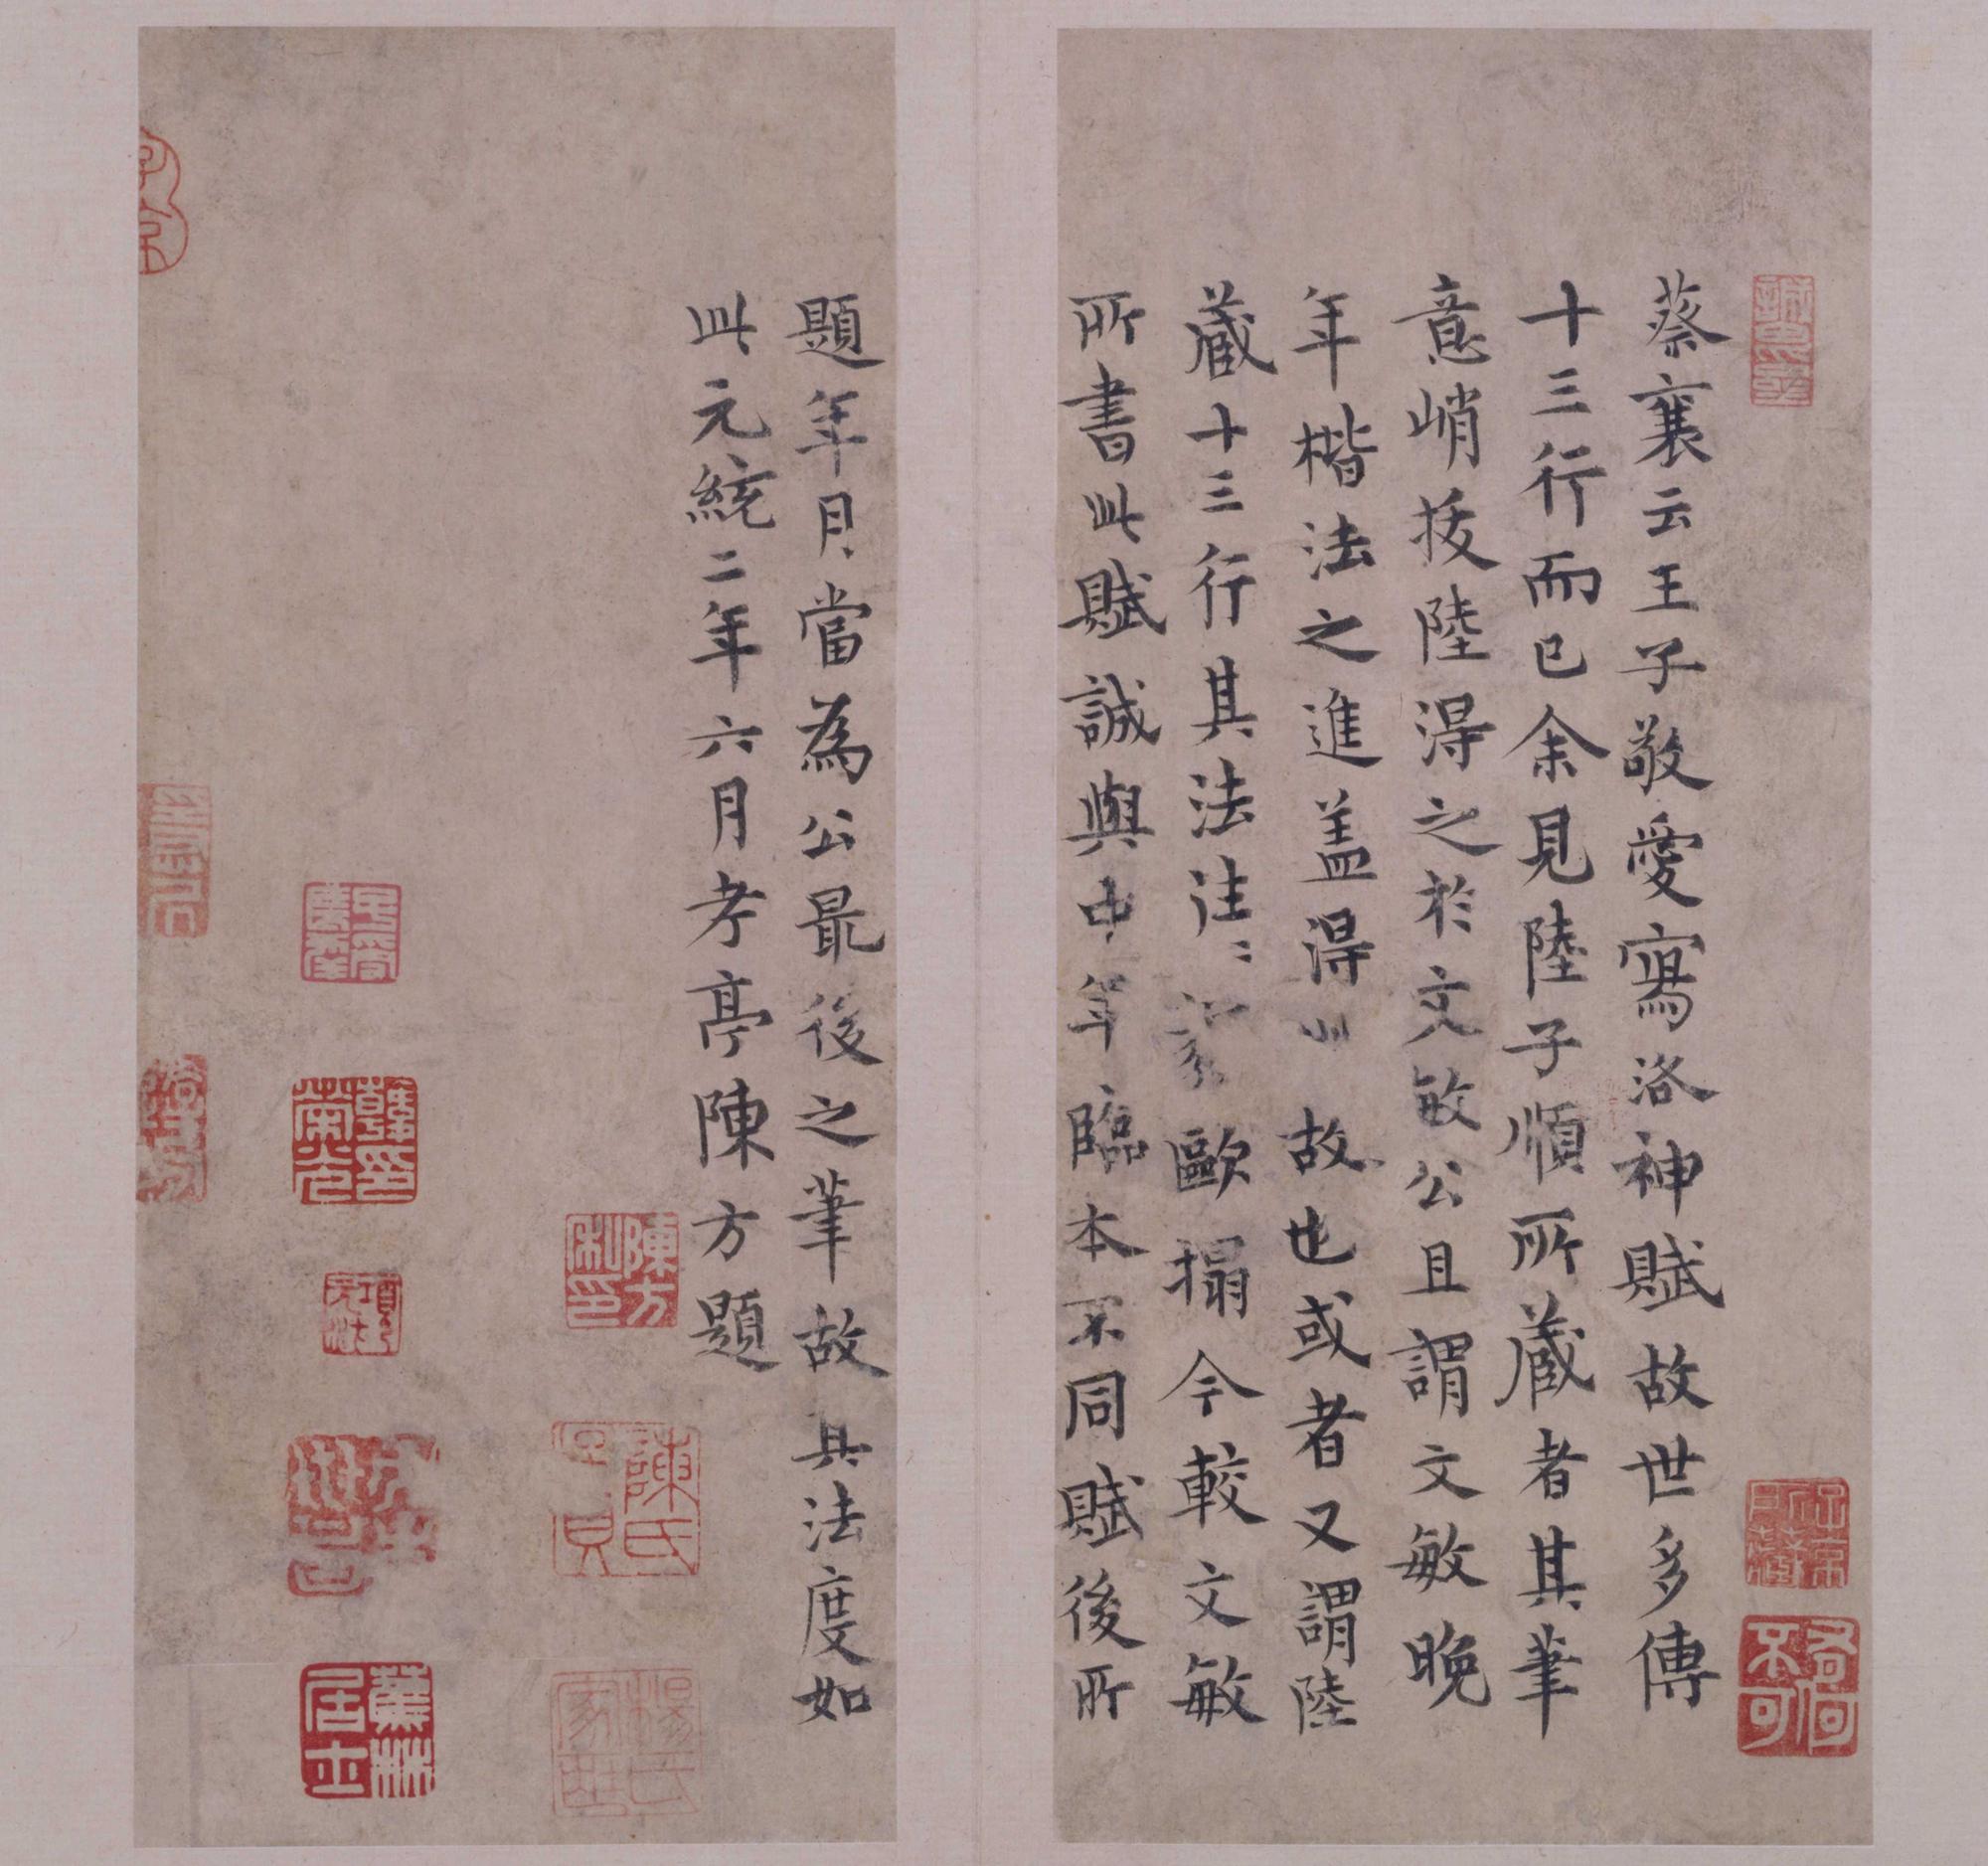 蔡襄云王子敬愛寫洛神賦故世多傳
十三行而已余見陸子順所藏者其筆
意峭拔陸得之於文敏公且謂文敏晚
年楷法之進盖得 故也或者又謂陸
藏十三行其法往〻 歐搨今較文敏
所書此賦誠與中年臨本不同賦後所
題年月當為公最後之筆故其法度如
此元統二年六月孝亭陳方題
陳方私印
陳氏
韓荣光印
蕉林居士
無何不可